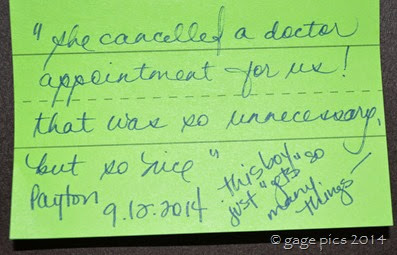 "she cancelled a doctor
appointment for us!
that was so unnecessary,
but so nice"
Payton
9.12.2014
this boy
just "gets" so
many
things —
© gage pics 2014